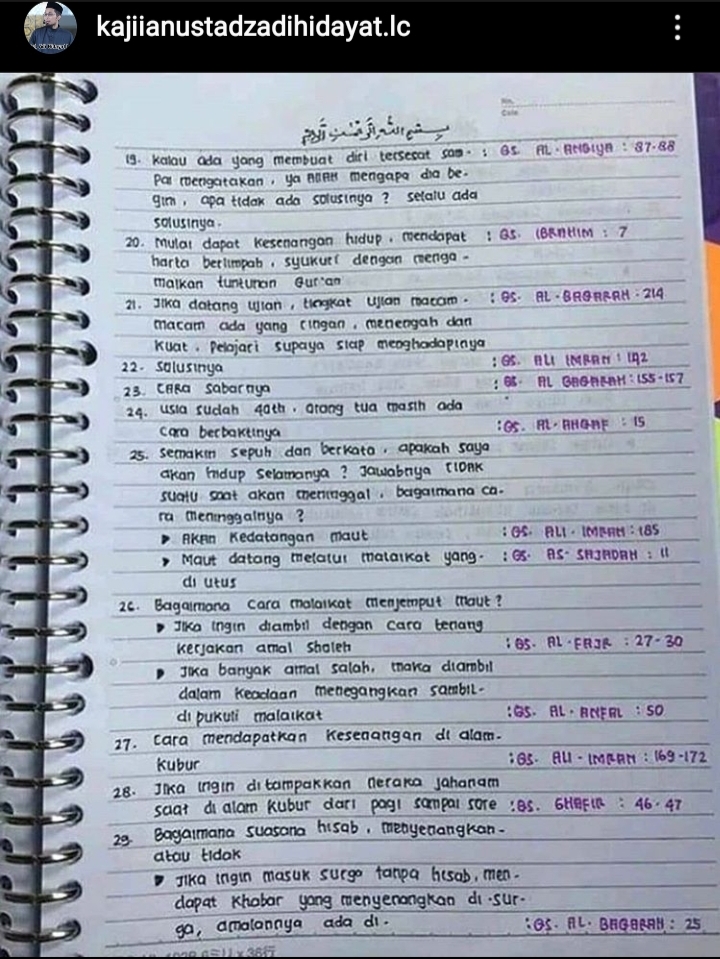 kajiianustadzadihidayat.lc
No.
Date
بسم الله الرحمن الرحيم
19. Kalau ada yang membuat diri tersesat sam- : QS. AL-ANBIYA : 87-88
pai mengatakan, ya ALLAH mengapa dia be-
gini, apa tidak ada solusinya ? selalu ada
solusinya.
20. Mulai dapat kesenangan hidup, mendapat : QS. IBRAHIM : 7
harta berlimpah, syukuri dengan menga-
malkan tuntunan Qur'an
21. Jika datang ujian, tingkat ujian macam- : QS. AL-BAQARAH : 214
macam ada yang ringan, menengah dan
kuat. Pelajari supaya siap menghadapinya
22. Solusinya : QS. ALI IMRAN : 142
23. CARA sabarnya : QS. AL BAQARAH : 155-157
24. usia sudah 40th, orang tua masih ada
cara berbaktinya : QS. AL-AHQAF : 15
25. semakin sepuh dan berkata, apakah saya
akan hidup selamanya ? Jawabnya TIDAK
suatu saat akan meninggal, bagaimana ca-
ra meninggalnya ?
▸ AKAN kedatangan maut : QS. ALI-IMRAN : 185
▸ Maut datang melalui malaikat yang- : QS. AS-SAJADAH : 11
di utus
26. Bagaimana cara malaikat menjemput maut ?
▸ Jika ingin diambil dengan cara tenang
kerjakan amal sholeh : QS. AL-FAJR : 27-30
▸ Jika banyak amal salah, maka diambil
dalam keadaan menegangkan sambil-
di pukuli malaikat : QS. AL-ANFAL : 50
27. Cara mendapatkan kesenangan di alam-
kubur : QS. ALI-IMRAN : 169-172
28. Jika ingin ditampakkan neraka jahanam
saat di alam kubur dari pagi sampai sore : QS. GHAFIR : 46-47
29. Bagaimana suasana hisab, menyenangkan-
atau tidak
▸ Jika ingin masuk surga tanpa hisab, men-
dapat khabar yang menyenangkan di-sur-
ga, amalannya ada di- : QS. AL-BAQARAH : 25